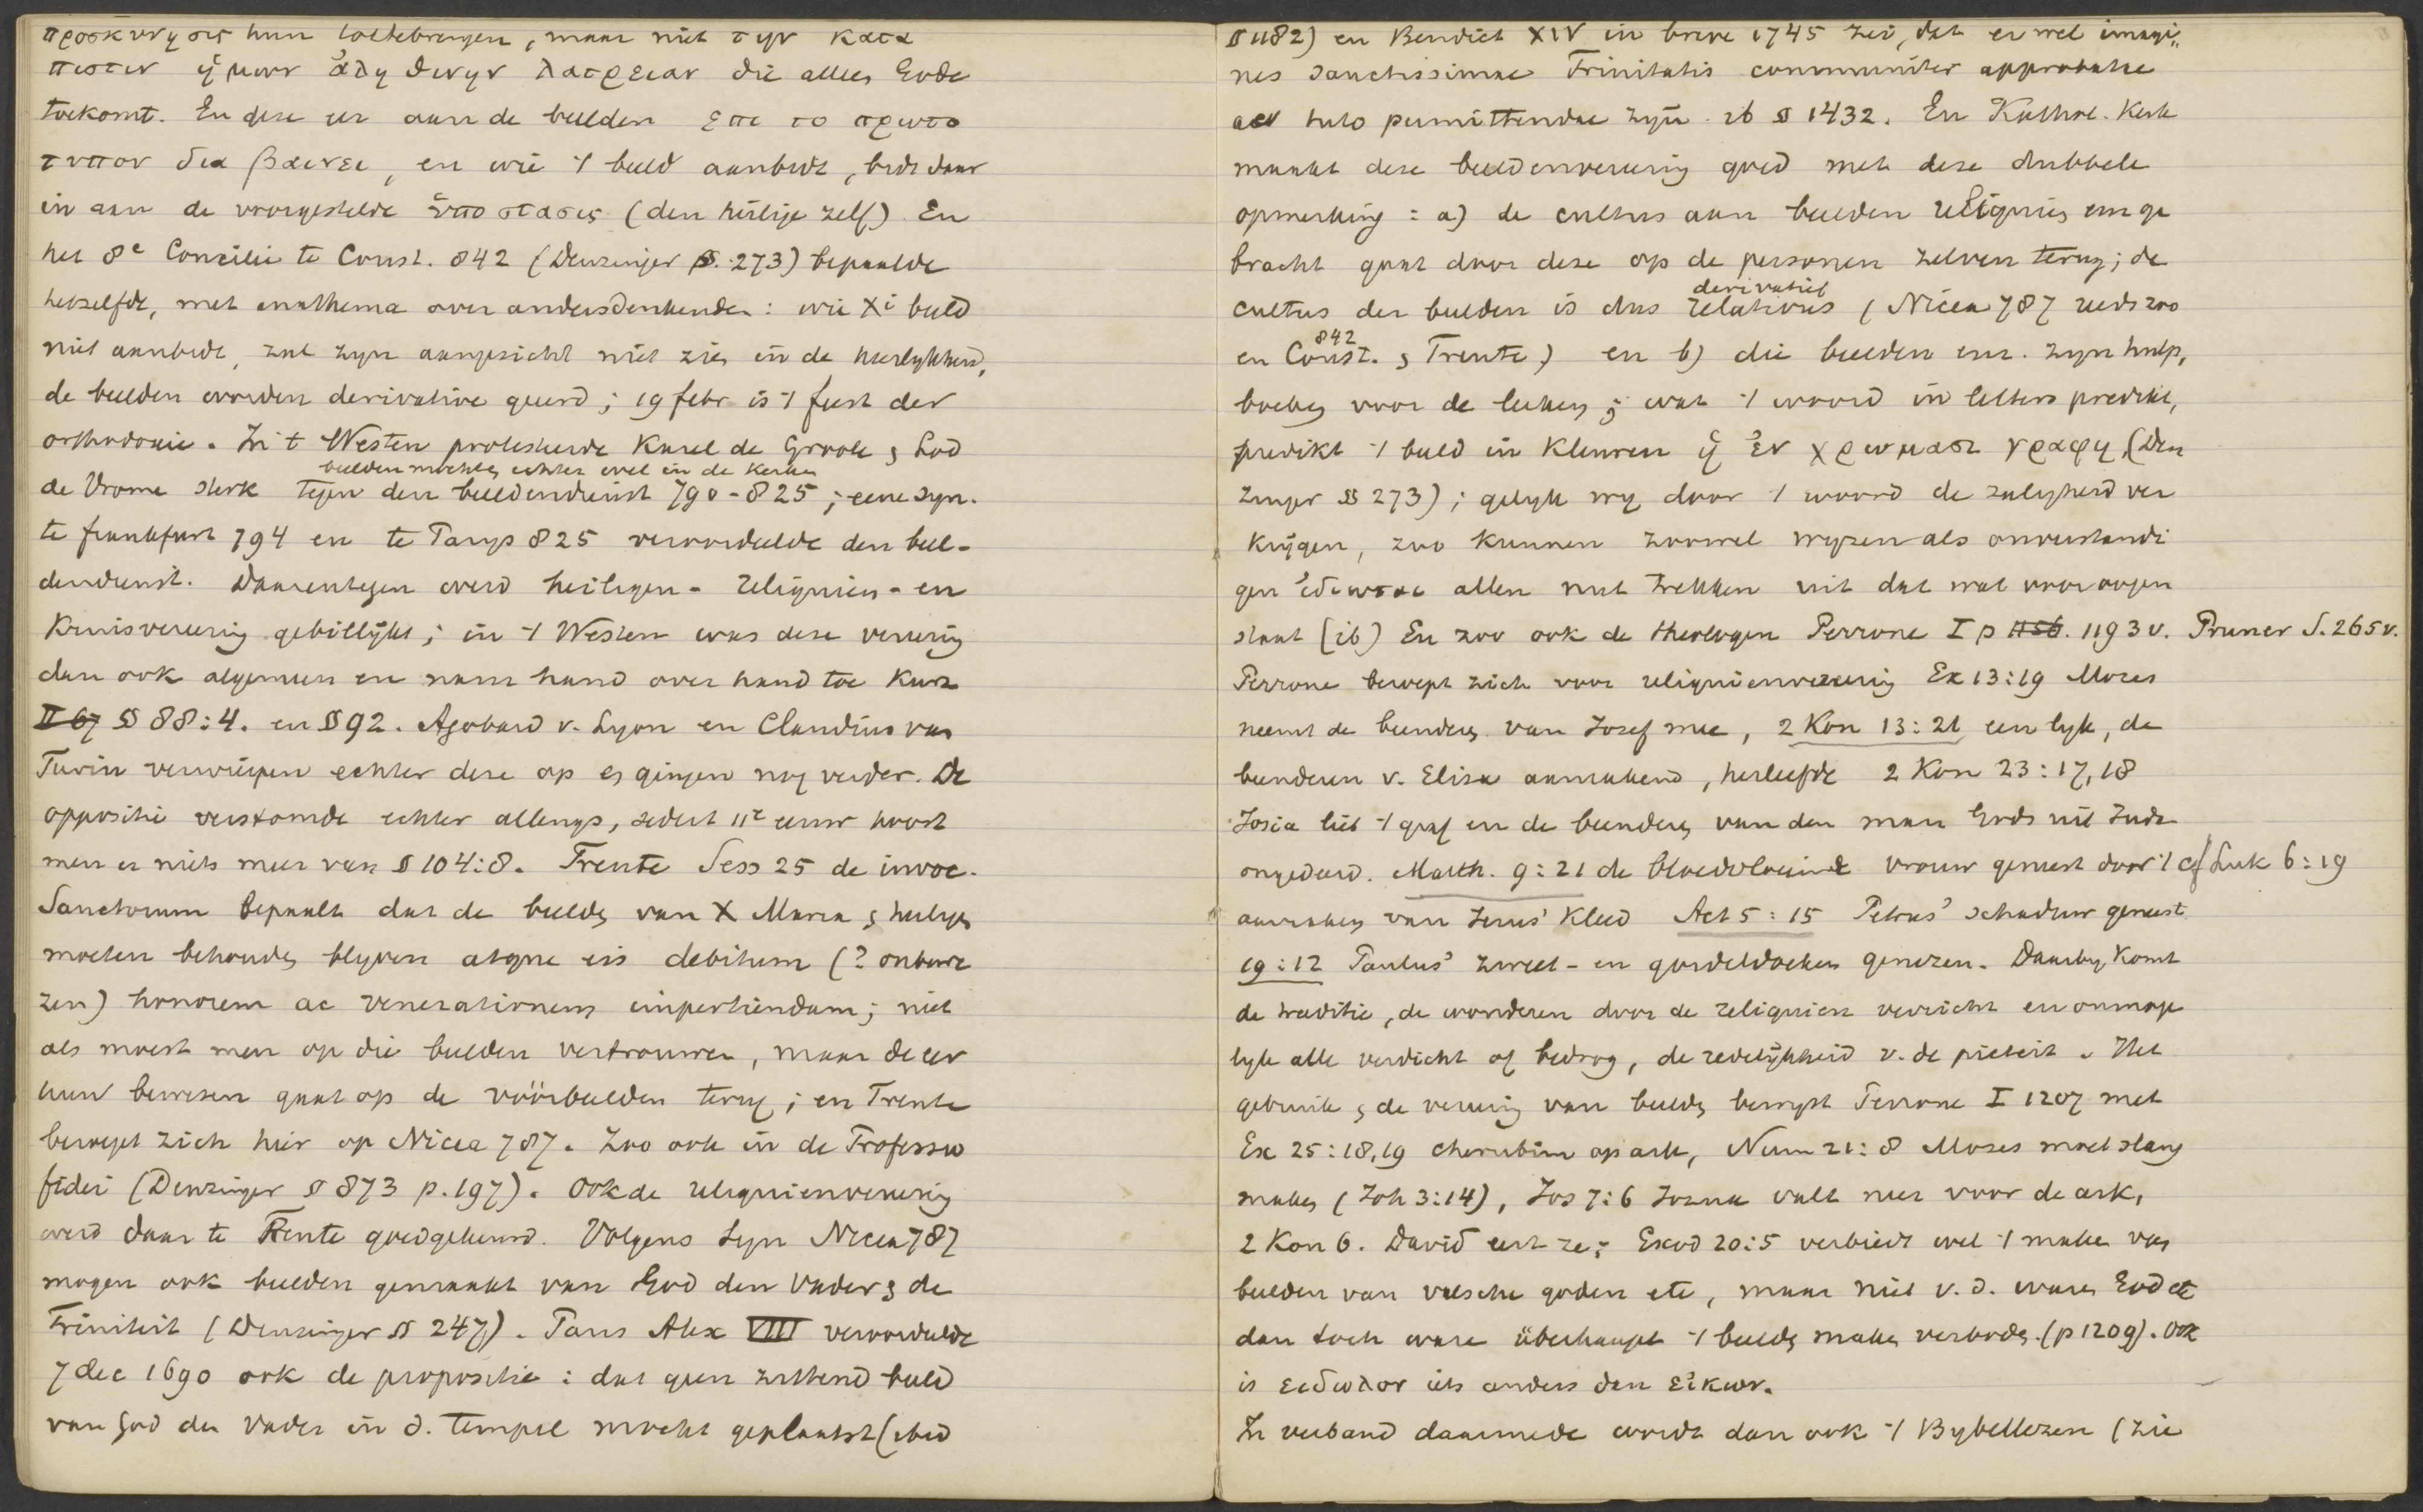 προσκυνησις hun toetebrengen, maar niet την κατα
πιστιν ἡμων ἀληθινην λατρειαν die alleen Gode
toekomt. En deze eer aan de beelden επι το πρωτο
τυπον διαβαινει, en wie 't beeld aanbidt, bidt daar
in aan de voorgestelde ὑποστασις (den heilige zelf) En
het 8e Concilie te Const. 842 (Denzinger §. 273) bepaalde
hetzelfde, met anathema over andersdenkenden: wie Xi beeld
niet aanbidt, zal zijn aangezicht niet zien in de heerlykheid,
de beelden worden derivative geeerd; 19 febr is 't feest der
orthodoxie. In 't Westen protesteerde Karel de Groote & Lod
beelden mochten echter wel in de kerken
de Vrome sterk tegen den beeldendienst 790-825; eene syn.
te frankfurt 794 en te Parys 825 veroordeelde den beel-
dendienst. Daarentegen werd heiligen- reliquien- en
Kruisvereering gebillijkt; in 't Westen was deze vereering
dan ook algemeen en nam hand over hand toe Kurz
II 67 § 88:4. en § 92. Agobard v. Lyon en Claudius van
Turin verwierpen echter deze op en gingen nog verder. De
oppositie verstomde echter allengs, sedert 11e eeuw hoort
men er niets meer van § 104:8. Trente Sess 25 de invoc.
Sanctorum bepaalt dat de beelden van X Maria & heiligen
moeten behouden blyven atque eis debitum (? onbewe
zen) honorem ac venerationem impertiendam; niet
als moest men op die beelden vertrouwen, maar de eer
hun bewezen gaat op de voorbeelden terug; en Trente
beroept zich hier op Nicea 787. Zoo ook in de Professio
fidei (Denzinger § 873 p. 197). Ook de reliquienvereering
werd daar te Trente goedgekeurd. Volgens Syn Nicea 787
mogen ook beelden gemaakt van God den Vader & de
Triniteit (Denzinger § 247). Paus Alex VIII veroordeelde
7 dec 1690 ook de propositie: dat geen zittend beeld
van God den Vader in d. tempel mocht geplaatst (ibid
§ 1182) en Benedict XIV in breve 1745 zei, dat er wel imagi„
nes sanctissimae Trinitatis communiter approbatae
ac tuto permittendae zyn ib § 1432. En Kathol. Kerk
maakt deze beeldenvereering goed met deze dubbele
opmerking: a) de cultus aan beelden reliquies enz ge
bracht gaat door deze op de personen zelven terug; de
derivatief
cultus der beelden is dus relativus (Nicea 787 reeds zoo
842
en Const. & Trente) en b) die beelden enz. zyn hulp,
boeken voor de leeken; wat 't woord in letters predikt,
predikt 't beeld in kleuren ἡ ἐν χρωμασι γραφη (Den
zinger § 273); gelyk wy door 't woord de zaligheid ver
krijgen, zoo kunnen zoowel wyzen als onverstandi
gen ἰδιωται allen nut trekken uit dat wat voor oogen
staat (ib) En zoo ook de theologen Perrone I p 1156. 1193 v. Pruner S. 265 v.
Perrone beroept zich voor reliquienvereering Ex 13:19 Mozes
neemt de beenderen van Jozef mee, 2 Kon 13:21 een lyk, de
beenderen v. Elisa aanrakend, herleefde 2 Kon 23:17,18
Josia liet 't graf en de beenderen van den man Gods uit Juda
ongedeerd. Matth. 9:21 de bloedvloeiende vrouw geneest door 't cf Luk 6:19
aanraken van Jezus' kleed Act 5:15 Petrus' schaduw geneest
19:12 Paulus' zweet- en gordeldoeken genezen. Daarby komt
de traditie, de wonderen door de reliquien verricht en onmoge
lyk alle verdicht of bedrog, de redelijkheid v. de pieteit. Het
gebruik & de vereering van beelden bewyst Perrone I 1207 met
Ex 25:18,19 cherubim op ark, Num 21:8 Mozes moet slang
maken (Joh 3:14), Jos 7:6 Jozua valt neer voor de ark,
2 Kon 6. David eert ze; Exod 20:5 verbiedt wel 't maken van
beelden van valsche goden etc, maar niet v. d. waren God etc
dan toch ware überhaupt 't beelden maken verboden (p 1209). Ook
is ειδωλον iets anders dan εἰκων.
In verband daarmede wordt dan ook 't Bybellezen (zie